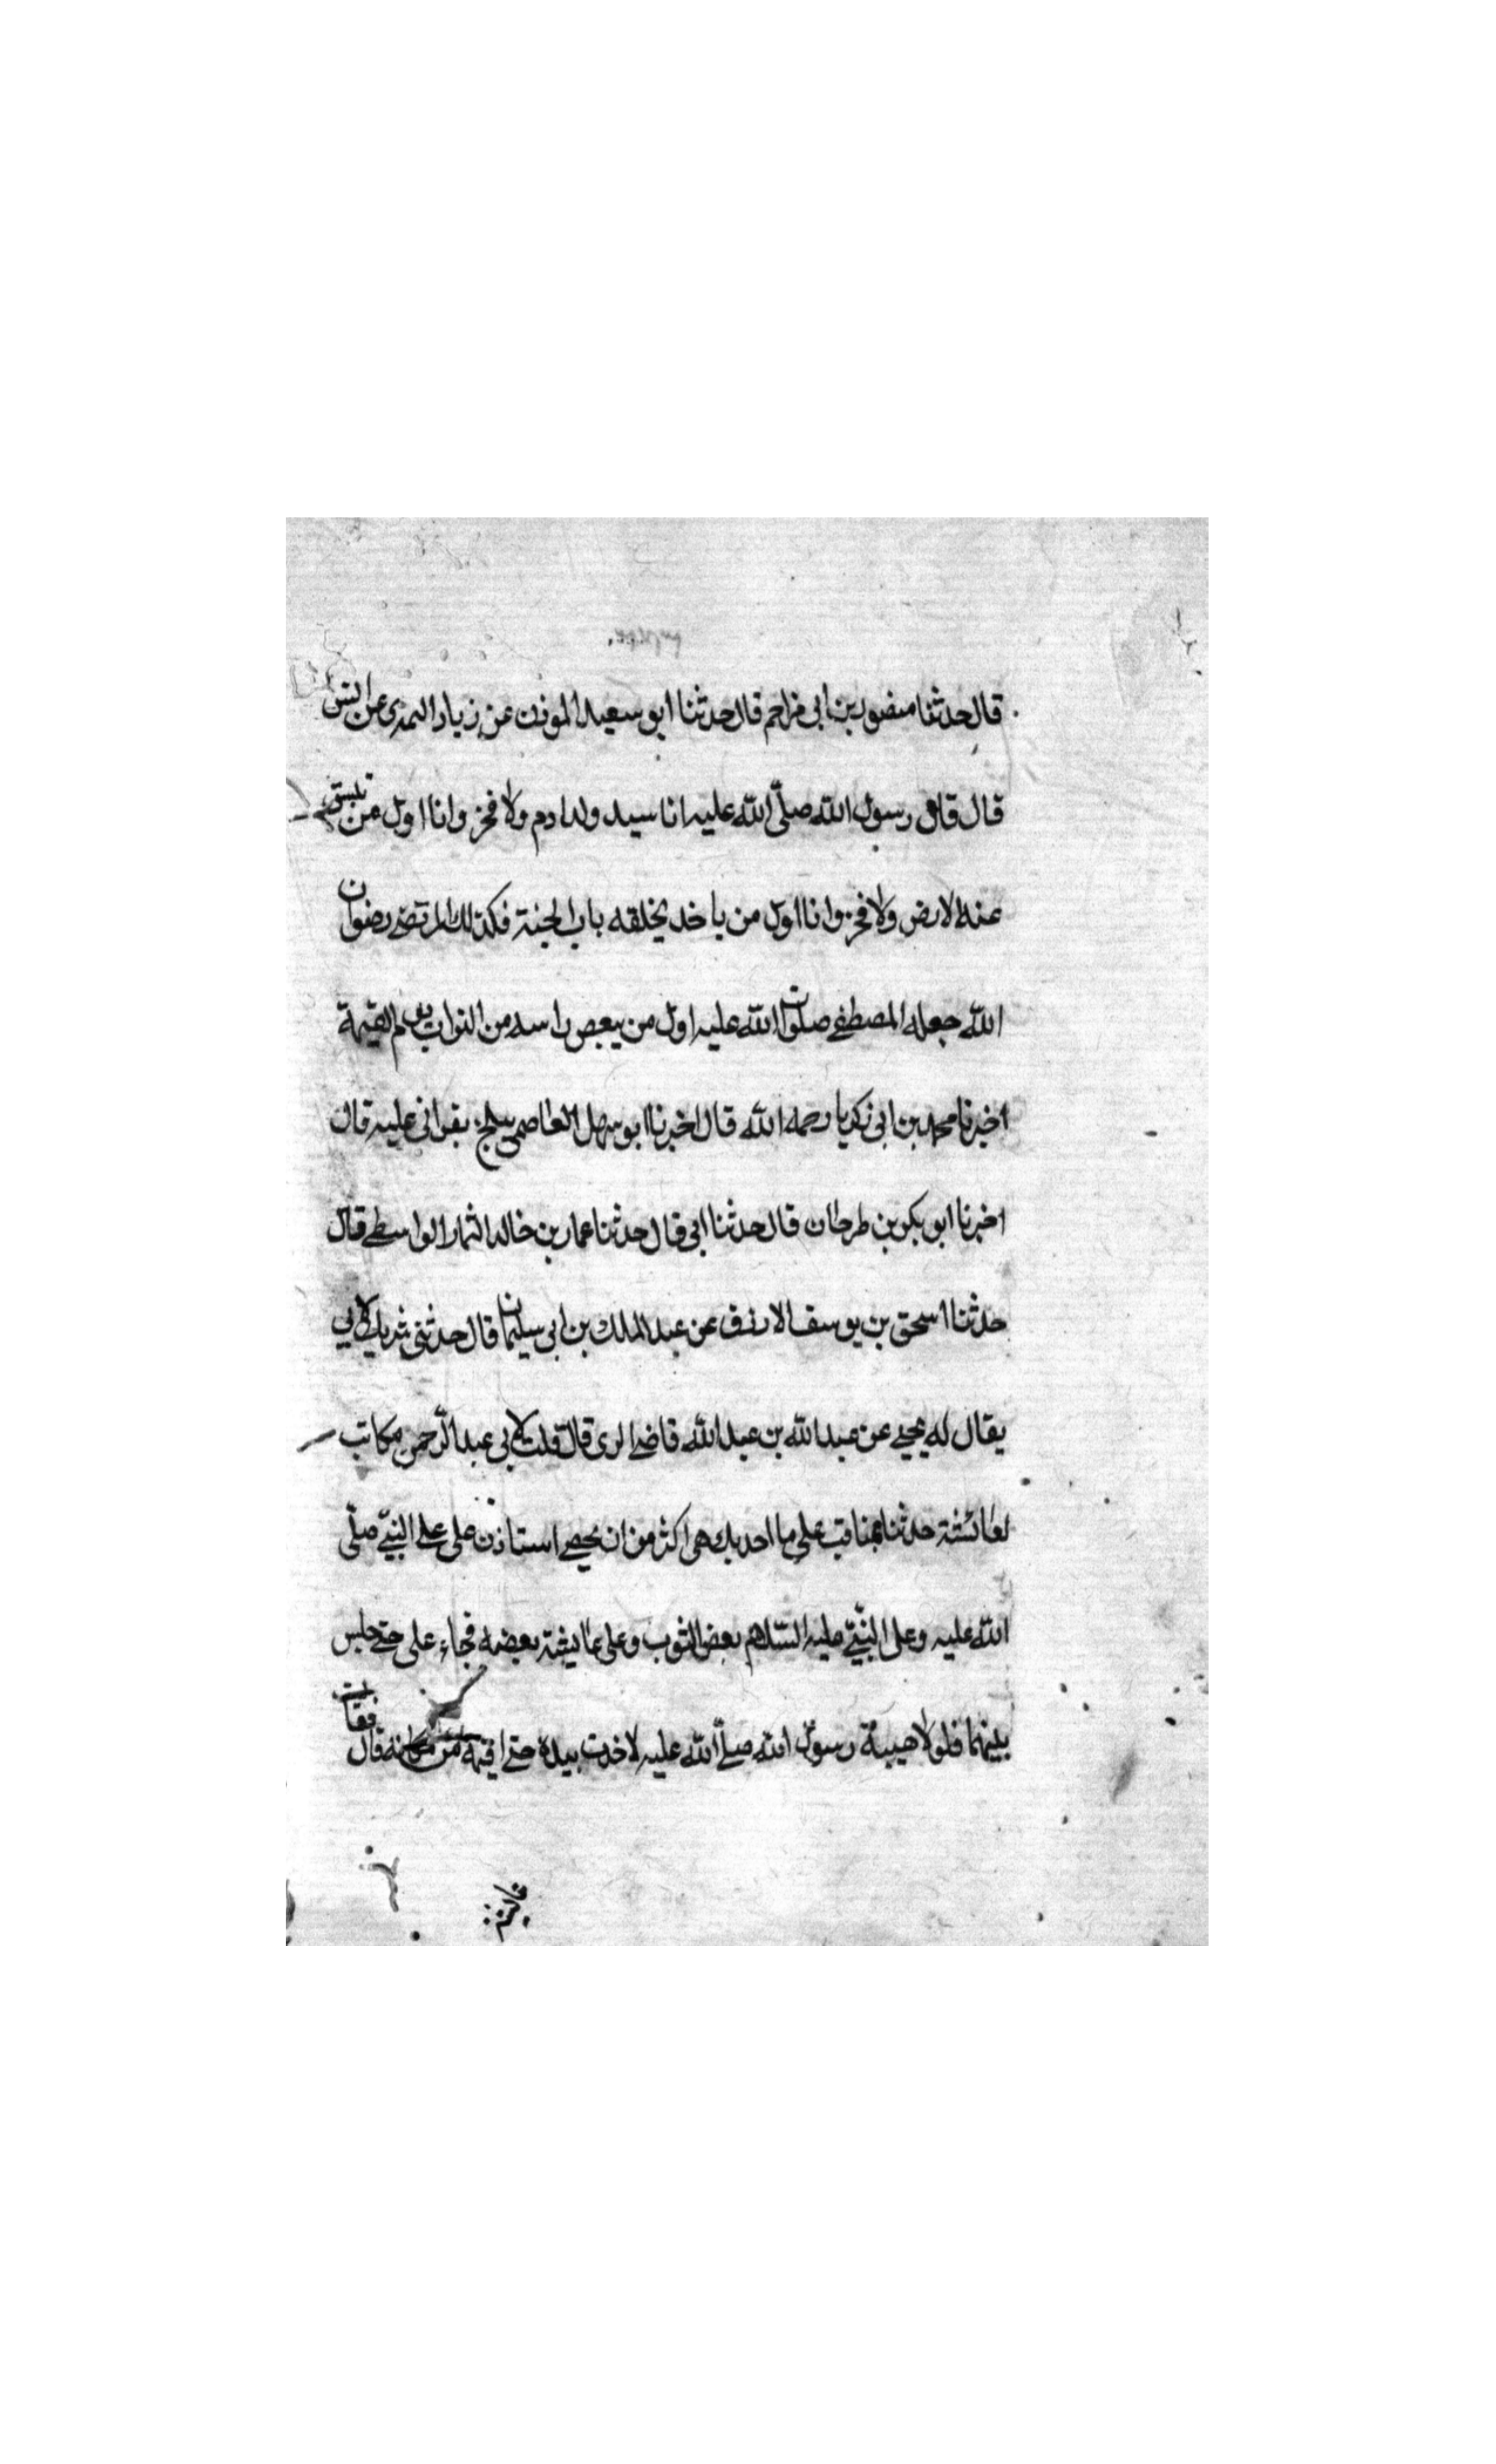 قال حدثنا منصور بن ابى مزاحم قال حدثنا ابو سعيد المؤذن عن زياد النمدى عن انس
قال قال رسول الله صلّى الله عليه انا سيد ولد ادم ولا فخر وانا اول من تنشق
عنه الارض ولا فخر وانا اول من ياخد بحلقه باب الجنة فكذلك المرتضى رضوان
الله جعله المصطفى صلوات الله عليه اول من ينفض راسه من التراب يوم القيمة
اخبرنا محمد بن ابى زكريا رحمه الله قال اخبرنا ابو سهل العاصمى ببلخ بقراتى عليه قال
اخبرنا ابو بكر بن طرخان قال حدثنا ابى قال حدثنا عمار بن خالد التمار الواسطى قال
حدثنا اسحق بن يوسف الازرق عن عبد الملك بن ابى سليمان قال حدثنى شريك لابى
يقال له يحيى عن عبد الله بن عبد الله قاضى الرى قال قلت لابى عبد الرحمن مكاتب
لعائشة حدثنا بمناقب على ما احدثك هى اكثر من ان تحصى استاذن على على النبى صلّى
الله عليه وعلى النبى عليه السّلام بعض الثوب وعلى عايشة بعضه فجاء على حتى جلس
بينهما فلولا هيبة رسول الله صلّى الله عليه لاخذت بيده حتى اقيمه من مكانه قال
فقات